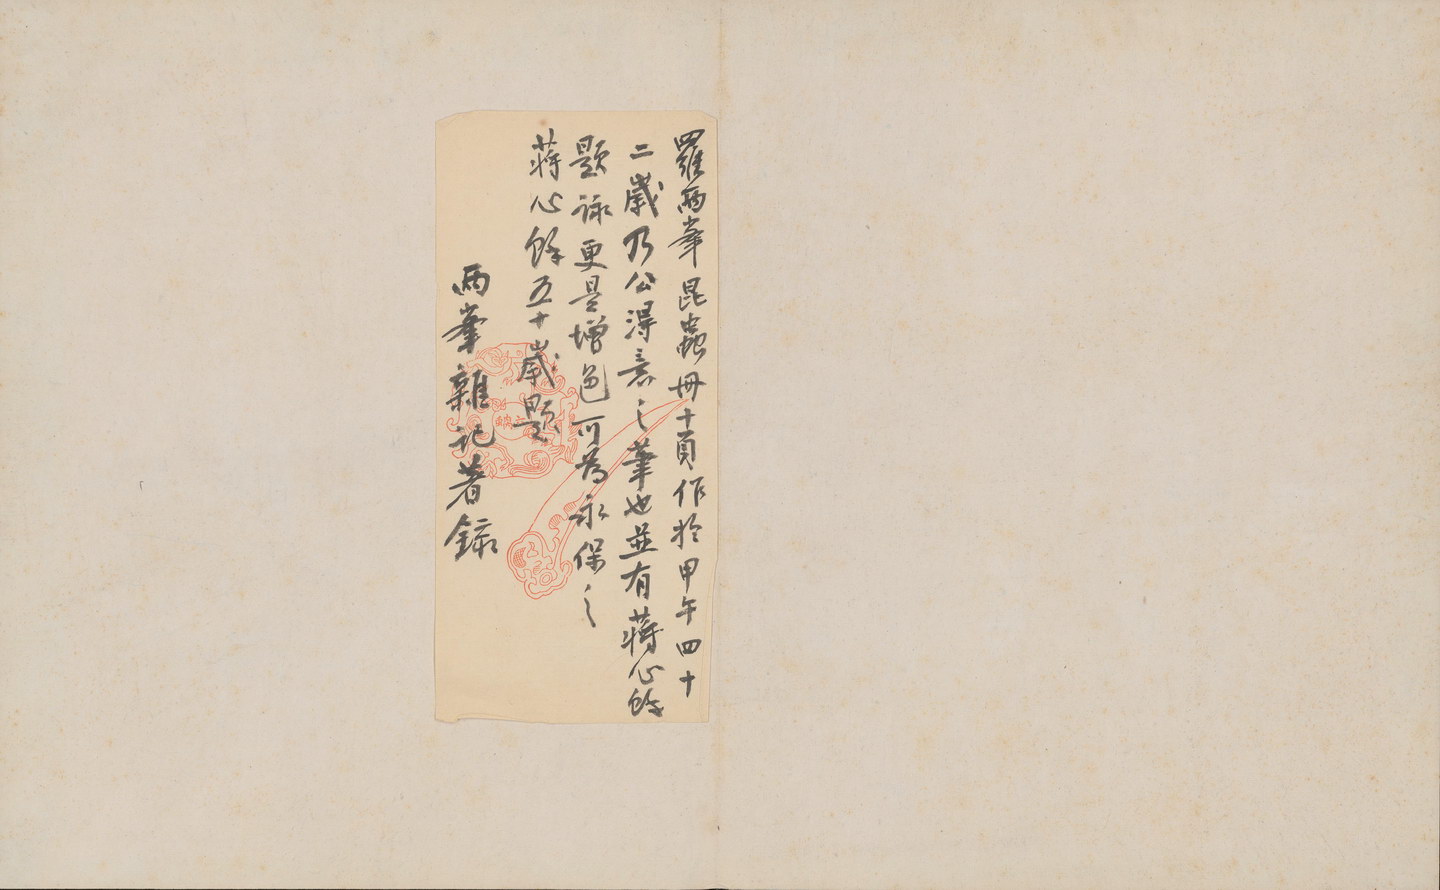 羅兩峯昆蟲冊十頁作於甲午四十
二歲乃公得意之筆也並有蔣心餘
題詠更是增色可為永保之
蔣心餘五十歲題
兩峯雜記著錄